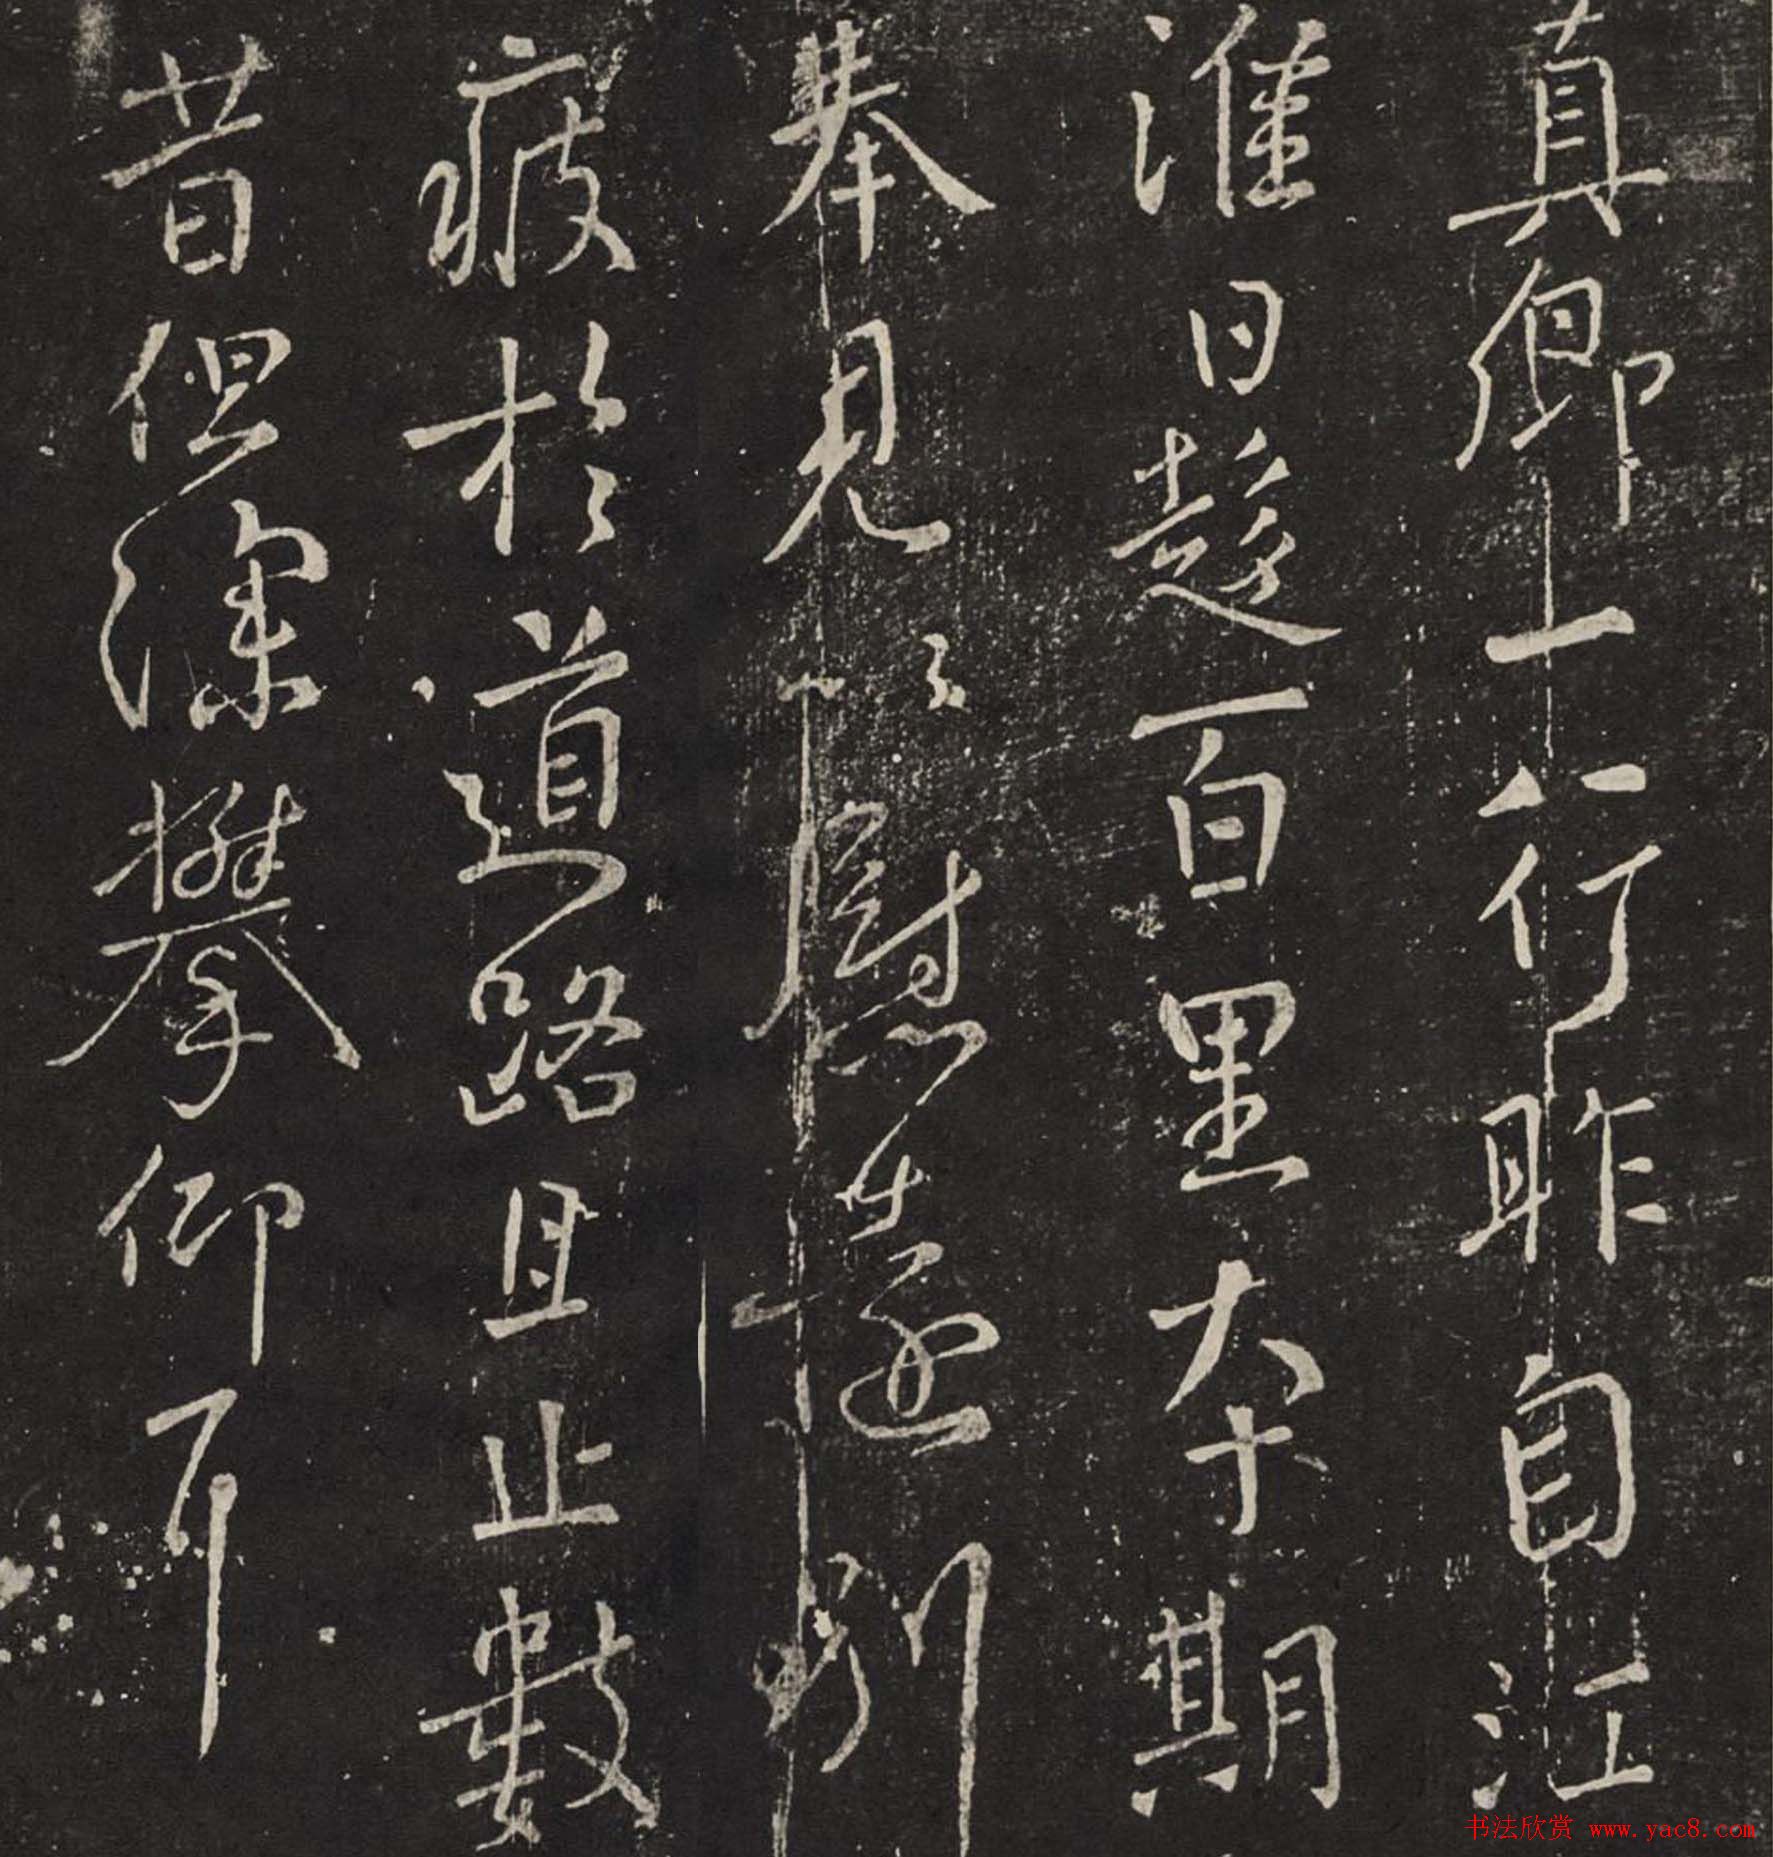 真卿一行昨自江
淮日趍百里本期
奉見以慰遠別
疲於道路且止數
昔但深攀仰耳
书法欣赏 www.yac8.com